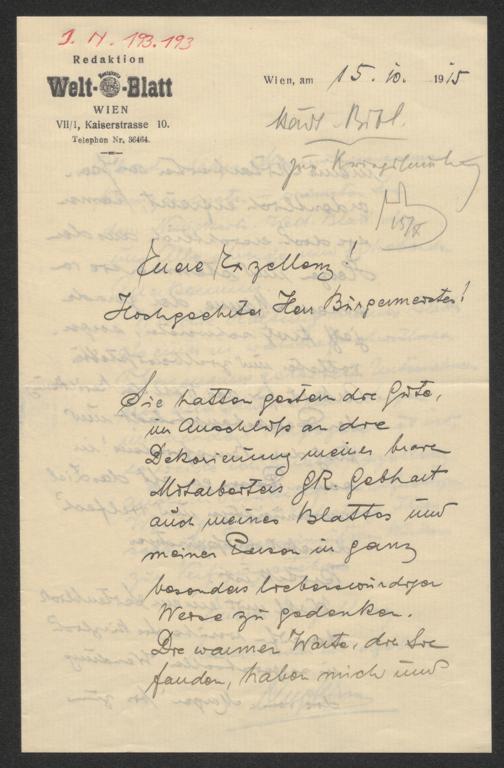 J. N. 193.193
Redaktion
Welt-Blatt
WIEN
VII/1, Kaiserstrasse 10.
Telephon Nr. 36464.
Wien, am 15. 10. 1915
Städt. Bibl.
zur Kriegssammlung
15/X
Euere Exzellenz!
Hochgeehrter Herr Bürgermeister!
Sie hatten gestern die Güte,
im Anschluß an die
Dekorierung meines braven
Mitarbeiters GR. Gebhart
auch meines Blattes und
meiner Person in ganz
besonders liebenswürdiger
Weise zu gedenken.
Die warmen Worte, die Sie
fanden, haben mich und